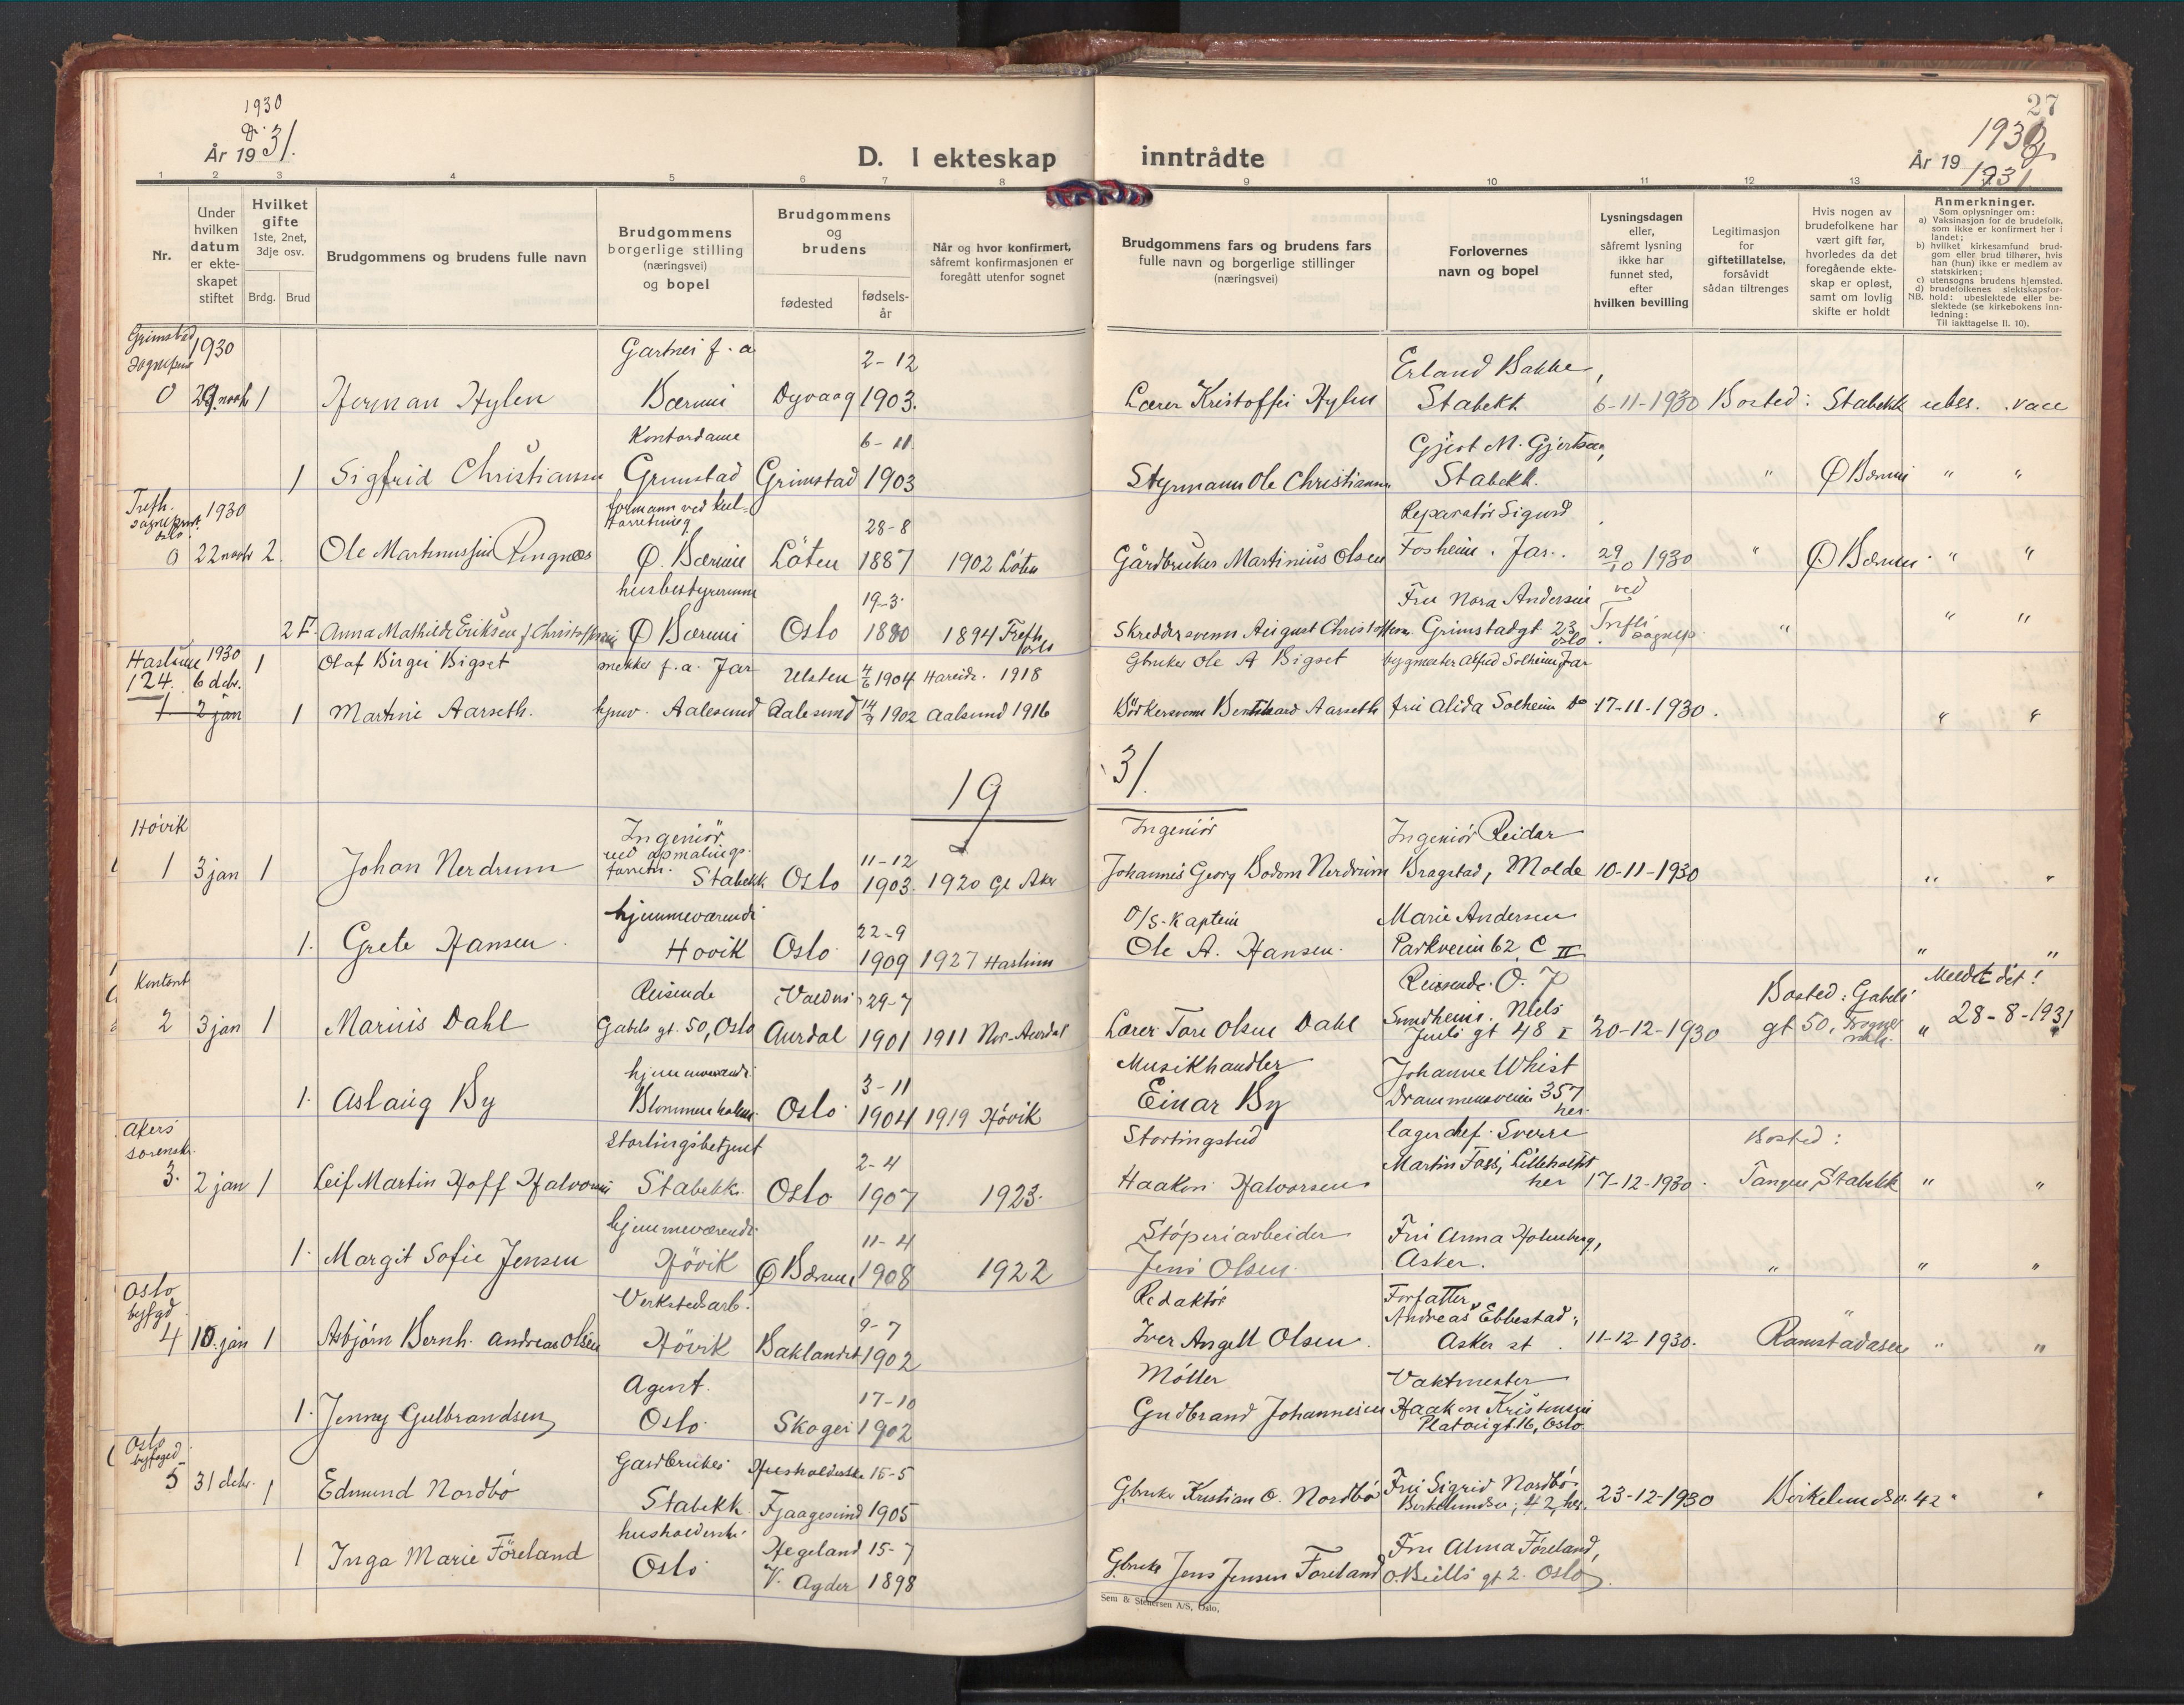 1930
&
År 1931.
D. I ekteskap
1 2 3 4 5 6 7 8
Nr.
Under hvilken datum er ekteskapet stiftet
Hvilket gifte 1ste, 2net, 3dje osv.
Brdg. Brud
Brudgommens og brudens fulle navn
Brudgommens borgerlige stilling (næringsvei) og bopel
Brudgommens og brudens
fødested
fødsels-år
Når og hvor konfirmert, såfremt konfirmasjonen er foregått utenfor sognet
Grimstad 1930 Gartner f. a. 2-12
sogneprest
0 29 novbr 1 Herman Hylen Bærum Dyvaag 1903.
Kontordame 6-11.
1 Sigfrid Christiansen Grimstad Grimstad 1903
Trefh. 1930 formann ved kul-
sogneprest. Oslo forretning 28-8
0 22 novbr 2. Ole Martinussen Ringnæs Ø. Bærum Löten 1887 1902 Löten
husbestyrerinne 19-3.
2 F. Anna Mathilde Eriksen f. Christoffersen Ø Bærum Oslo 1880 1894 Trefh. Oslo
Haslum 1930 1 Olaf Birger Bigset snekker f. a. Jar Ulsten 4/6 1904 Hareide. 1918
124. 6 debr.
1 2 jan 1 Martine Aarseth. hjmv. Aalesund Aalesund 14/7 1902 Aalesund 1916
19
Hövik Ingeniör
ved opmålings-
1 3 jan 1 Johan Nerdrum forretn. Stabekk Oslo 11-12 1903. 1920 Gl. Aker
hjemmeværende 22-9
1. Grete Hansen. Hovik Oslo 1909 1927 Haslum
Kontant Reisende Valdres 29-7
2 3 jan 1 Marius Dahl Gabels gt. 50, Oslo Aurdal 1901 1911 Nor-Aurdal
hjemmeværende 3-11
1. Aslaug By Blommenholm. Oslo 1904 1919 Hövik
Akers Stortingsbetjent
sorenskr. 2-4
3. 2 jan 1 Leif Martin Hoff Halvorsen Stabekk. Oslo 1907 1923.
hjemmeværende 11-4
1. Margit Sofie Jensen Hövik Ø Bærum 1908 1922
Oslo Verkstedsarb.
byfogd 9-7
4 10. jan 1 Asbjørn Bernh. Andreas Olsen Hövik Baklandet 1902
Agent. 17-10
1. Jenny Gulbrandsen Oslo. Skoger 1902
Oslo Gardbruker Husholderske 15-5
byfoged
5 31 debr. 1 Edmund Nordbö Stabekk Fjaagesund 1905
husholderske Hegeland 15-7
1 Inga Marie Föreland Oslo V. Agder 1898
27
inntrådte
1930
&
År 19 1931.
9 10 11 12 13
Brudgommens fars og brudens fars fulle navn og borgerlige stillinger (næringsvei)
Forlovernes navn og bopel
Lysningsdagen eller, såfremt lysning ikke har funnet sted, efter hvilken bevilling
Legitimasjon for giftetillatelse, forsåvidt sådan tiltrenges
Hvis nogen av brudefolkene har vært gift før, hvorledes da det foregående ekteskap er opløst, samt om lovlig skifte er holdt
Anmerkninger.
Som oplysninger om:
a) Vaksinasjon for de brudefolk, som ikke er konfirmert her i landet;
b) hvilket kirkesamfund brudgom eller brud tilhører, hvis han (hun) ikke er medlem av statskirken;
c) utensogns brudens hjemsted.
d) brudefolkenes slektskapsforhold: ubeslektede eller beslektede (se kirkebokens innledning:
NB. Til iakttagelse II. 10).
Erland Bakke,
Lærer Kristoffer Hylen Stabekk 6-11-1930 Bosted: Stabekk ubes. vacc
Gjert M. Gjertsen,
Styrmann Ole Christiansen Stabekk. " Ø Bærum " "
Reparatör Sigurd
Gårdbruker Martinius Olsen Fosheim. Jar. 29/10 1930 " Ø Bærum " "
Fru Nora Andersen ved
Skreddersvenn August Christoffersen Grimstadgt. 23 Oslo. Trefh. sognep. " " "
Gbruker Ole A Bigset bygmester Alfred Solheim Jar
Bödkersvenn Bernhard Aarseth fru Alida Solheim do 17-11-1930. " "
31.
Ingeniör Ingeniör Reidar
Johannes Georg Bodom Nerdrum Bragstad, Molde 10-11-1930 " "
O/S-Kaptein Marie Andersen
Ole A. Hansen. Parkveien 62 C II " "
Reisende O. J. Bosted: Gabels Meldt dit!
Lærer Tore Olsen Dahl Sundheim. Niels Juels gt 48 I 20-12-1930 gt 50, Frogner " 28-8-1931
Musikhandler Johanne Whist
Einar By Drammensveien 357 her.
Stortingsbud lagerchef Sverre Bosted:
Haakon Halvorsen Martin Foss, Lilleholt her 17-12-1930. Tangen, Stabekk " "
Stöperiarbeider Fru Anna Holmberg,
Jens Olsen. Asker. " " "
Redaktör Forfatter
Iver Angell Olsen. Andreas Ebbestad, Asker st. 11-12-1930. Ramstadasen " "
Möller Vaktmester
Gudbrand Johannesen Haakon Kristensen
Platousgt. 16, Oslo.
Gbruker Kristian O. Nordbö Fru Sigrid Nordbö. Birkelundsv. 42, her. 23-12-1930 Birkelundsv. 42 " "
Fru Alma Föreland,
Gbruker Jens Jensen Foreland O. Bulls gt 2. Oslo.
Sem & Stenersen A/S, Oslo.